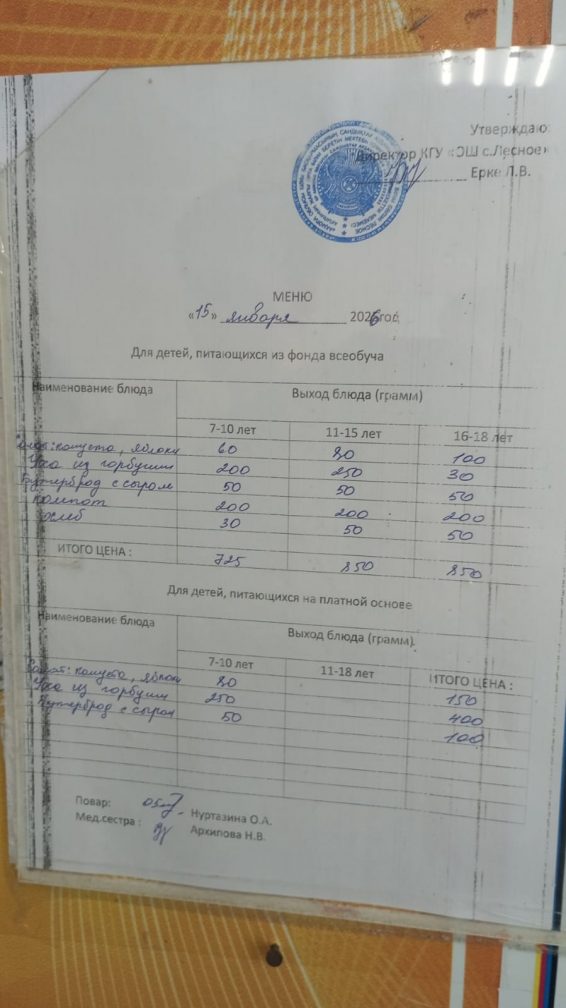 Утверждаю:
Директор КГУ «ОШ с.Лесное»
Ерке Л.В.
МЕНЮ
«15» января 2026 год
Для детей, питающихся из фонда всеобуча
Наименование блюда Выход блюда (грамм)
7-10 лет 11-15 лет 16-18 лет
Салат: капуста, яблоки 60 80 100
Уха из горбуши 200 250 30
Бутерброд с сыром 50 50 50
компот 200 200 200
хлеб 30 50 50
ИТОГО ЦЕНА : 725 850 850
Для детей, питающихся на платной основе
Наименование блюда Выход блюда (грамм)
7-10 лет 11-18 лет ИТОГО ЦЕНА :
Салат: капуста, яблоки 80 150
Уха из горбуши 250 400
Бутерброд с сыром 50 100
Повар: Нуртазина О.А.
Мед.сестра : Архипова Н.В.